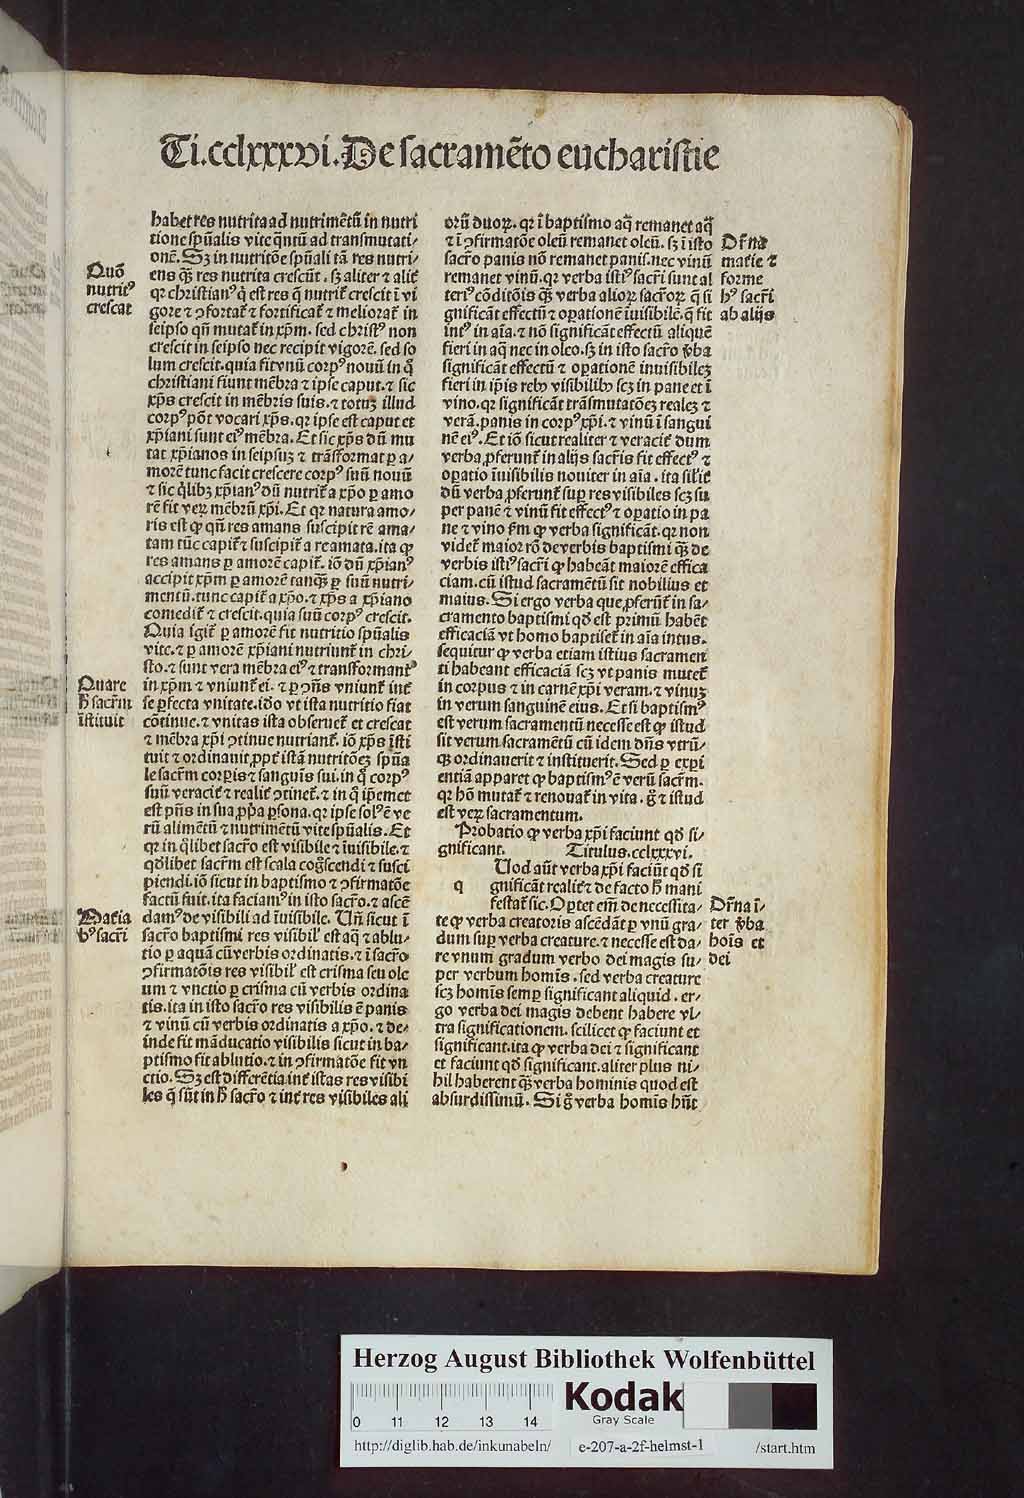 Ti.cclxxxvi.De sacramēto eucharistie
habet res nutrita ad nutrimētū in nutri
tione spūalis vite q̄ntū ad transmutati-
onē. Sꝫ in nutritōe spūali tā res nutri-
ens qꝫ res nutrita crescūt. sꝫ aliter ⁊ alit̄
qꝛ christian⁹ q̇ est res q̄ nutrit̄ crescit ī vi
gore ⁊ ꝯfortat̄ ⁊ fortificat̄ ⁊ meliorat̄ in
seipso qn̄ mutat̄ in xp̄m. sed christ⁹ non
crescit in seipso nec recipit vigorē. sed so
lum crescit. quia fit vnū corp⁹ nouū in q̇
christiani fiunt mēbra ⁊ ipse caput. ⁊ sic
xp̄s crescit in mēbris suis. ⁊ totuꝫ illud
corp⁹ pōt vocari xp̄s. qꝛ ipse est caput et
xp̄iani sunt ei⁹ mēbra. Et sic xp̄s dū mu
tat xp̄ianos in seipsuꝫ ⁊ trāsformat ꝑ a-
morē tunc facit crescere corp⁹ suū nouū
⁊ sic q̄libꝫ xp̄ian⁹ dū nutrit̄ a xp̄o ꝑ amo
rē fit veꝝ mēbrū xp̄i. Et qꝛ natura amo-
ris est ꝙ qn̄ res amans suscipit rē ama-
tam tūc capit̄ ⁊ suscipit̄ a re amata. ita ꝙ
res amans ꝑ amorē capit̄. iō dū xp̄ian⁹
accipit xp̄m ꝑ amorē tanqꝫ ꝑ suū nutri-
mentū. tunc capit̄ a xp̄o. ⁊ xp̄s a xp̄iano
comedit̄ ⁊ crescit. quia suū corp⁹ crescit.
Quia igit̄ ꝑ amorē fit nutritio spūalis
vite. ⁊ ꝑ amorē xp̄iani nutriunt̄ in chri-
sto. ⁊ sunt vera mēbra ei⁹ ⁊ transformant̄
in xp̄m ⁊ vniunt̄ ei. ⁊ ꝑ ꝯn̄s vniunt̄ int̄
se ꝑfecta vnitate. iđo vt ista nutritio fiat
cōtinue. ⁊ vnitas ista obseruet̄ et crescat
⁊ mēbra xp̄i ꝯtinue nutriant̄. iō xp̄s īsti
tuit ⁊ ordinauit ꝓpt̄ istā nutritōeꝫ spūa
le sacr̄m corꝑis ⁊ sanguīs sui. in q̇ corp⁹
suū veracit̄ ⁊ realit̄ ꝯtinet̄. ⁊ in q̇ ip̄emet
est pn̄s in sua ꝓp̄a ꝑsona. qꝛ ipse sol⁹ ē ve
rū alimētū ⁊ nutrimētū vite spūalis. Et
qꝛ in q̄libet sacr̄o est visibile ⁊ īuisibile. ⁊
qđlibet sacr̄m est scala coḡscendi ⁊ susci
piendi. iō sicut in baptismo ⁊ ꝯfirmatōe
factū fuit. ita faciam⁹ in isto sacr̄o. ⁊ ascē
dam⁹ de visibili ad īuisibile. Un̄ sicut ī
sacr̄o baptismi res visibil' est aq̄ ⁊ ablu-
tio ꝑ aquā cū verbis ordinatis. ⁊ ī sacr̄o
ꝯfirmatōis res visibil' est crisma seu ole
um ⁊ vnctio ꝑ crisma cū verbis ordina
tis. ita in isto sacr̄o res visibilis ē panis
⁊ vinū cū verbis ordinatis a xp̄o. ⁊ de-
inde fit māducatio visibilis sicut in ba-
ptismo fit ablutio. ⁊ in ꝯfirmatōe fit vn
ctio. Sꝫ est differētia int̄ istas res visibi
les q̄ sūt in h̄ sacr̄o ⁊ int̄ res visibiles ali
Quō
nutrit⁹
crescat
Quare
h̄ sacr̄m
īstituit
Mat̄ia
h⁹ sacr̄i
orū duoꝝ. qꝛ ī baptismo aq̄ remanet aq̄
⁊ ī ꝯfirmatōe oleū remanet oleū. sꝫ ī isto
sacr̄o panis nō remanet panis. nec vinū
remanet vinū. qꝛ verba isti⁹ sacr̄i sunt al
teri⁹ cōditōis qꝫ verba alioꝝ sacr̄oꝝ q̄ si
gnificāt effectū ⁊ oꝑationē īuisibilē. q̄ fit
int⁹ in aīa. ⁊ nō significāt effectū aliquē
fieri in aq̄ nec in oleo. sꝫ in isto sacr̄o v̄ba
significāt effectū ⁊ oꝑationē inuisibileꝫ
fieri in ip̄is rebꝫ visibilibꝫ scꝫ in pane et ī
vino. qꝛ significāt trāsmutatōeꝫ realeꝫ ⁊
verā. panis in corp⁹ xp̄i. ⁊ vinū ī sangui
nē ei⁹. Et iō sicut realiter ⁊ veracit̄ dum
verba ꝓferunt̄ in alijs sacr̄is fit effect⁹ ⁊
oꝑatio īuisibilis nouiter in aīa. ita silit̄
dū verba ꝓferunt̄ suꝑ res visibiles scꝫ su
per panē ⁊ vinū fit effect⁹ ⁊ oꝑatio in pa
ne ⁊ vino ẜm ꝙ verba significāt. qꝛ non
videt̄ maior rō de verbis baptismi qꝫ de
verbis isti⁹ sacr̄i ꝙ habeāt maiorē effica
ciam. cū istud sacramētū sit nobilius et
maius. Si ergo verba que ꝓferūt̄ in sa-
cramento baptismi qđ est primū habēt
efficaciā vt homo baptiset̄ in aīa intus.
sequitur ꝙ verba etiam istius sacramen
ti habeant efficaciā scꝫ vt panis mutet̄
in corpus ⁊ in carnē xp̄i veram. ⁊ vinuꝫ
in verum sanguinē eius. Et si baptism⁹
est verum sacramentū necesse est ꝙ istud
sit verum sacramētū cū idem dn̄s vtrū-
qꝫ ordinauerit ⁊ instituerit. Sed ꝑ exꝑi
entiā apparet ꝙ baptism⁹ ē verū sacr̄m.
qꝛ hō mutat̄ ⁊ renouat̄ in vita. g̊ ⁊ istud
est veꝝ sacramentum.
Probatio ꝙ verba xp̄i faciunt qđ si-
gnificant. Titulus. cclxxxvi.
q Uod aūt verba xp̄i faciūt qđ si
gnificāt realit̄ ⁊ de facto h̄ mani
festat̄ sic. Oꝑtet em̄ de necessita-
te ꝙ verba creatoris ascēdāt ꝑ vnū gra-
dum suꝑ verba creature. ⁊ necesse est da-
re vnum gradum verbo dei magis su-
per verbum homīs. sed verba creature
scꝫ homīs semꝑ significant aliquid. er-
go verba dei magis debent habere vl-
tra significationem. scilicet ꝙ faciunt et
significant. ita ꝙ verba dei ⁊ significant
et faciunt qđ significant. aliter plus ni-
hil haberent qꝫ verba hominis quod est
absurdissimū. Si g̊ verba homīs hn̄t
Dr̄na
mat̄ie ⁊
forme
h⁹ sacr̄i
ab alijs
Dr̄na ī-
ter v̄ba
hoīs et
dei
Herzog August Bibliothek Wolfenbüttel
0 11 12 13 14
Kodak
Gray Scale
http://diglib.hab.de/inkunabeln/ e-207-a-2f-helmst-1 /start.htm